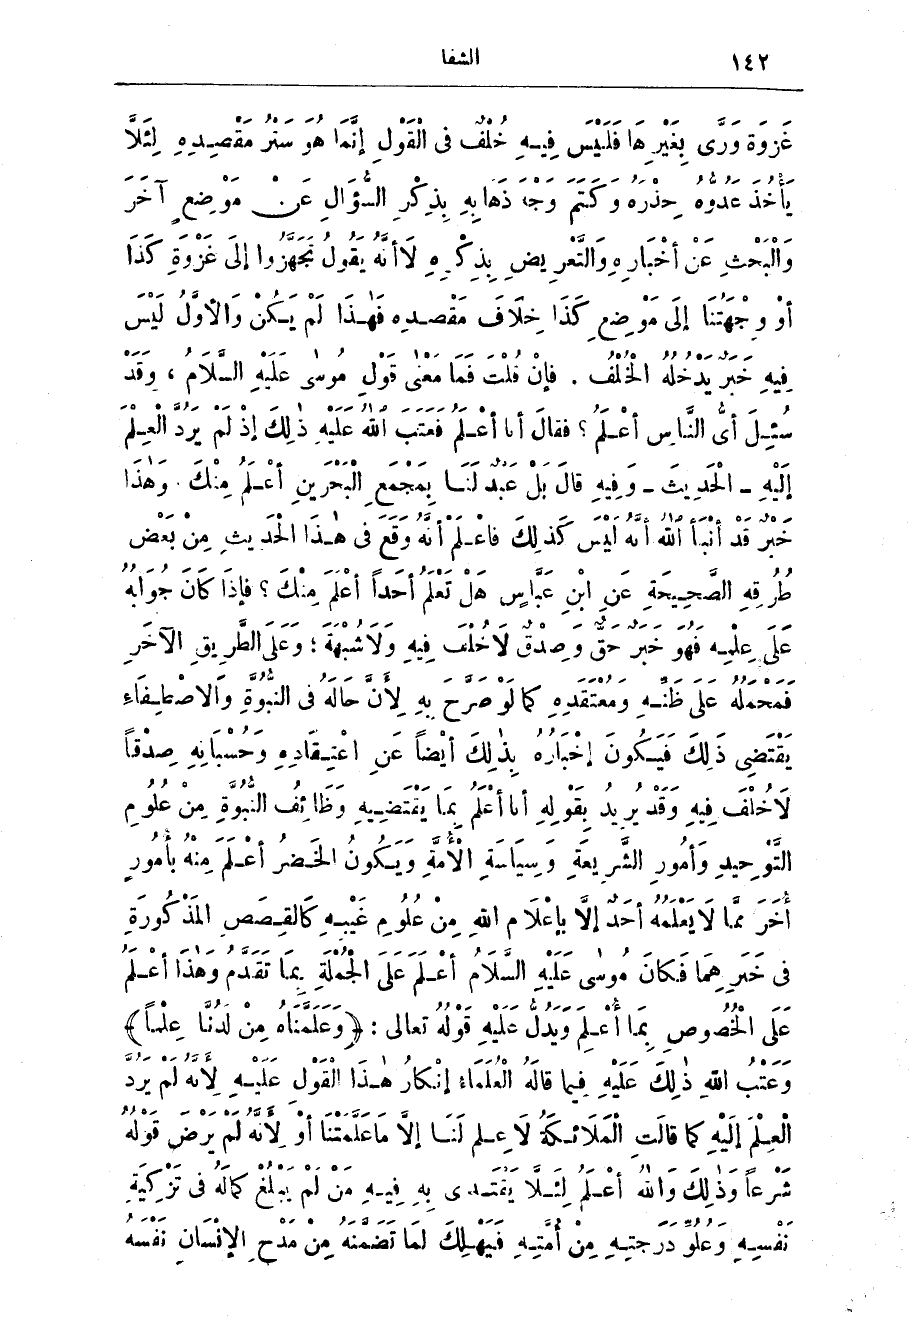 ١٤٢
الشفا
غَزْوَةً وَرَّى بِغَيْرِهَا فَلَيْسَ فِيهِ خُلْفٌ فِى الْقَوْلِ إِنَّمَا هُوَ سَتْرُ مَقْصِدِهِ لِئَلَّا
يَأْخُذَ عَدُوُّهُ حِذْرَهُ وَكَتَمَ وَجْهَ ذَهَابِهِ بِذِكْرِ السُّؤَالِ عَنْ مَوْضِعٍ آخَرَ
وَالْبَحْثِ عَنْ أَخْبَارِهِ وَالتَّعْرِيضِ بِذِكْرِهِ لَا أَنَّهُ يَقُولُ تَجَهَّزُوا إِلَى غَزْوَةِ كَذَا
أَوْ وِجْهَتُنَا إِلَى مَوْضِعِ كَذَا خِلَافَ مَقْصِدِهِ فَهٰذَا لَمْ يَكُنْ وَالْأَوَّلُ لَيْسَ
فِيهِ خَبَرٌ يَدْخُلُهُ الْخُلْفُ . فَإِنْ قُلْتَ فَمَا مَعْنَى قَوْلِ مُوسَى عَلَيْهِ السَّلَامُ ، وَقَدْ
سُئِلَ أَىُّ النَّاسِ أَعْلَمُ ؟ فَقَالَ أَنَا أَعْلَمُ فَعَتَبَ اللهُ عَلَيْهِ ذٰلِكَ إِذْ لَمْ يَرُدَّ الْعِلْمَ
إِلَيْهِ - الْحَدِيثَ - وَفِيهِ قَالَ بَلْ عَبْدٌ لَنَا بِمَجْمَعِ الْبَحْرَيْنِ أَعْلَمُ مِنْكَ . وَهٰذَا
خَبَرٌ قَدْ أَنْبَأَ اللهُ أَنَّهُ لَيْسَ كَذٰلِكَ فَاعْلَمْ أَنَّهُ وَقَعَ فِى هٰذَا الْحَدِيثِ مِنْ بَعْضِ
طُرُقِهِ الصَّحِيحَةِ عَنِ ابْنِ عَبَّاسٍ هَلْ تَعْلَمُ أَحَداً أَعْلَمَ مِنْكَ ؟ فَإِذَا كَانَ جَوَابُهُ
عَلَى عِلْمِهِ فَهُوَ خَبَرٌ حَقٌّ وَصِدْقٌ لَا خُلْفَ فِيهِ وَلَا شُبْهَةَ ؛ وَعَلَى الطَّرِيقِ الْآخَرِ
فَمَحْمَلُهُ عَلَى ظَنِّهِ وَمُعْتَقَدِهِ كَمَا لَوْ صَرَّحَ بِهِ لِأَنَّ حَالَهُ فِى النُّبُوَّةِ وَالِاصْطِفَاءِ
يَقْتَضِى ذٰلِكَ فَيَكُونُ إِخْبَارُهُ بِذٰلِكَ أَيْضاً عَنِ اعْتِقَادِهِ وَحُسْبَانِهِ صِدْقاً
لَا خُلْفَ فِيهِ وَقَدْ يُرِيدُ بِقَوْلِهِ أَنَا أَعْلَمُ بِمَا يَقْتَضِيهِ وَظَائِفُ النُّبُوَّةِ مِنْ عُلُومِ
التَّوْحِيدِ وَأُمُورِ الشَّرِيعَةِ وَسِيَاسَةِ الْأُمَّةِ وَيَكُونُ الْخَضِرُ أَعْلَمَ مِنْهُ بِأُمُورٍ
أُخَرَ مِمَّا لَا يَعْلَمُهُ أَحَدٌ إِلَّا بِإِعْلَامِ اللهِ مِنْ عُلُومِ غَيْبِهِ كَالْقِصَصِ الْمَذْكُورَةِ
فِى خَبَرِهِمَا فَكَانَ مُوسَى عَلَيْهِ السَّلَامُ أَعْلَمَ عَلَى الْجُمْلَةِ بِمَا تَقَدَّمَ وَهٰذَا أَعْلَمُ
عَلَى الْخُصُوصِ بِمَا أُعْلِمَ وَيَدُلُّ عَلَيْهِ قَوْلُهُ تَعَالَى : ﴿وَعَلَّمْنَاهُ مِنْ لَدُنَّا عِلْماً﴾
وَعَتْبُ اللهِ ذٰلِكَ عَلَيْهِ فِيمَا قَالَهُ الْعُلَمَاءُ إِنْكَارُ هٰذَا الْقَوْلِ عَلَيْهِ لِأَنَّهُ لَمْ يَرُدَّ
الْعِلْمَ إِلَيْهِ كَمَا قَالَتِ الْمَلَائِكَةُ لَا عِلْمَ لَنَا إِلَّا مَا عَلَّمْتَنَا أَوْ لِأَنَّهُ لَمْ يَرْضَ قَوْلَهُ
شَرْعاً وَذٰلِكَ وَاللهُ أَعْلَمُ لِئَلَّا يَقْتَدِى بِهِ فِيهِ مَنْ لَمْ يَبْلُغْ كَمَالَهُ فِى تَزْكِيَةِ
نَفْسِهِ وَعُلُوِّ دَرَجَتِهِ مِنْ أُمَّتِهِ فَيَهْلِكَ لِمَا تَضَمَّنَهُ مِنْ مَدْحِ الْإِنْسَانِ نَفْسَهُ